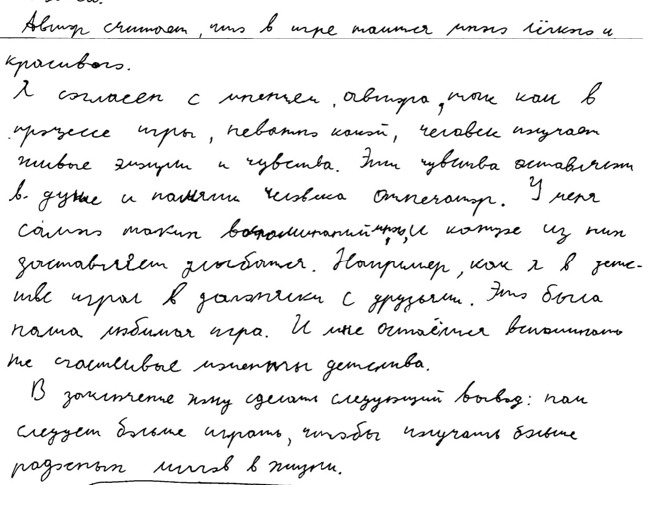 Автор считает, что в игре таится много лёгкого и
красивого.
Я согласен с мнением автора, так как в
процессе игры, неважно какой, человек получает
живые эмоции и чувства. Эти чувства оставляют
в душе и памяти человека отпечаток. У меня
самого таких воспоминаний много, и каждое из них
заставляет улыбаться. Например, как я в детс-
тве играл в догонялки с друзьями. Это была
наша любимая игра. И мне остаётся вспоминать
те счастливые моменты детства.
В заключение хочу сделать следующий вывод: нам
следует больше играть, чтобы получать больше
радостных мигов в жизни.